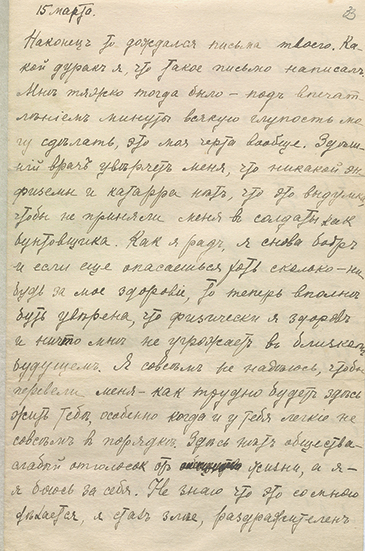 15 марта.
Наконецъ то дождался письма твоего. Ка-
кой дуракъ я, что такое письмо написалъ.
Мнѣ тяжко тогда было – подъ впечат-
лѣніемъ минуты всякую глупость мо-
гу сдѣлать, это моя черта вообще. Здѣш-
ній врачъ увѣряетъ меня, что никакой эм
физемы и катарра нѣтъ, что это выдумка
чтобы не приняли меня в солдаты как
бунтовщика. Как я радъ, я снова бодръ
и если еще опасаешься хоть сколько-ни
будь за мое здоровіе, то теперь вполнѣ
будь увѣрена, что физически я здоровъ
и ничто мнѣ не угрожаетъ въ близкомъ
будущемъ. Я совсѣмъ не надѣюсь, чтобы
перевели меня – как трудно будетъ здѣсь
жить тебѣ, особенно когда и у тебя легкіе не
совсѣмъ в порядкѣ. Здѣсь нѣтъ общества –
слабый отголосок отъ жизни, а я –
я боюсь за себя. Не знаю что это со мною
дѣлается, я сталъ злѣе, раздражителен